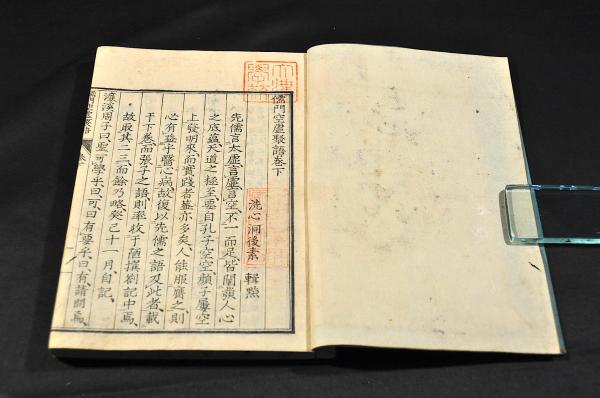 儒門空虛聚語卷下
洗心洞後素 輯點
先儒言太虛言虛言空不一而足皆闡發人心
之底蘊天道之極至要自孔子空空顔子屢空
上發明來而實踐者蓋亦多矣人能服膺之則
必有益乎醫心病故復以先儒之語及此者載
于下卷而張子之語則率收于陋撰劄記中焉
故取其二三而餘乃略癸巳十一月自記
濂溪周子曰聖可學乎曰可曰有要乎曰有請問焉
儒門空虛聚語